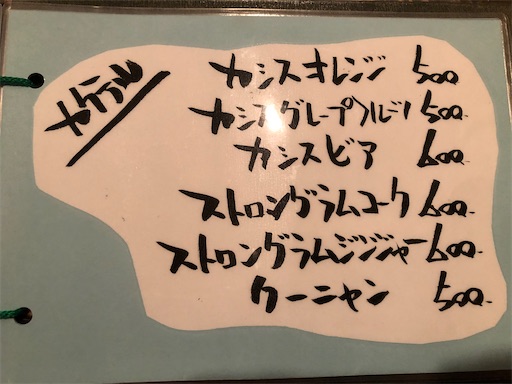 カクテル
カシスオレンジ 500
カシスグレープフルーツ 500.
カシスビア 600.
ストロングラムコーク 600.
ストロングラムジンジャー 600.
クーニャン 500.